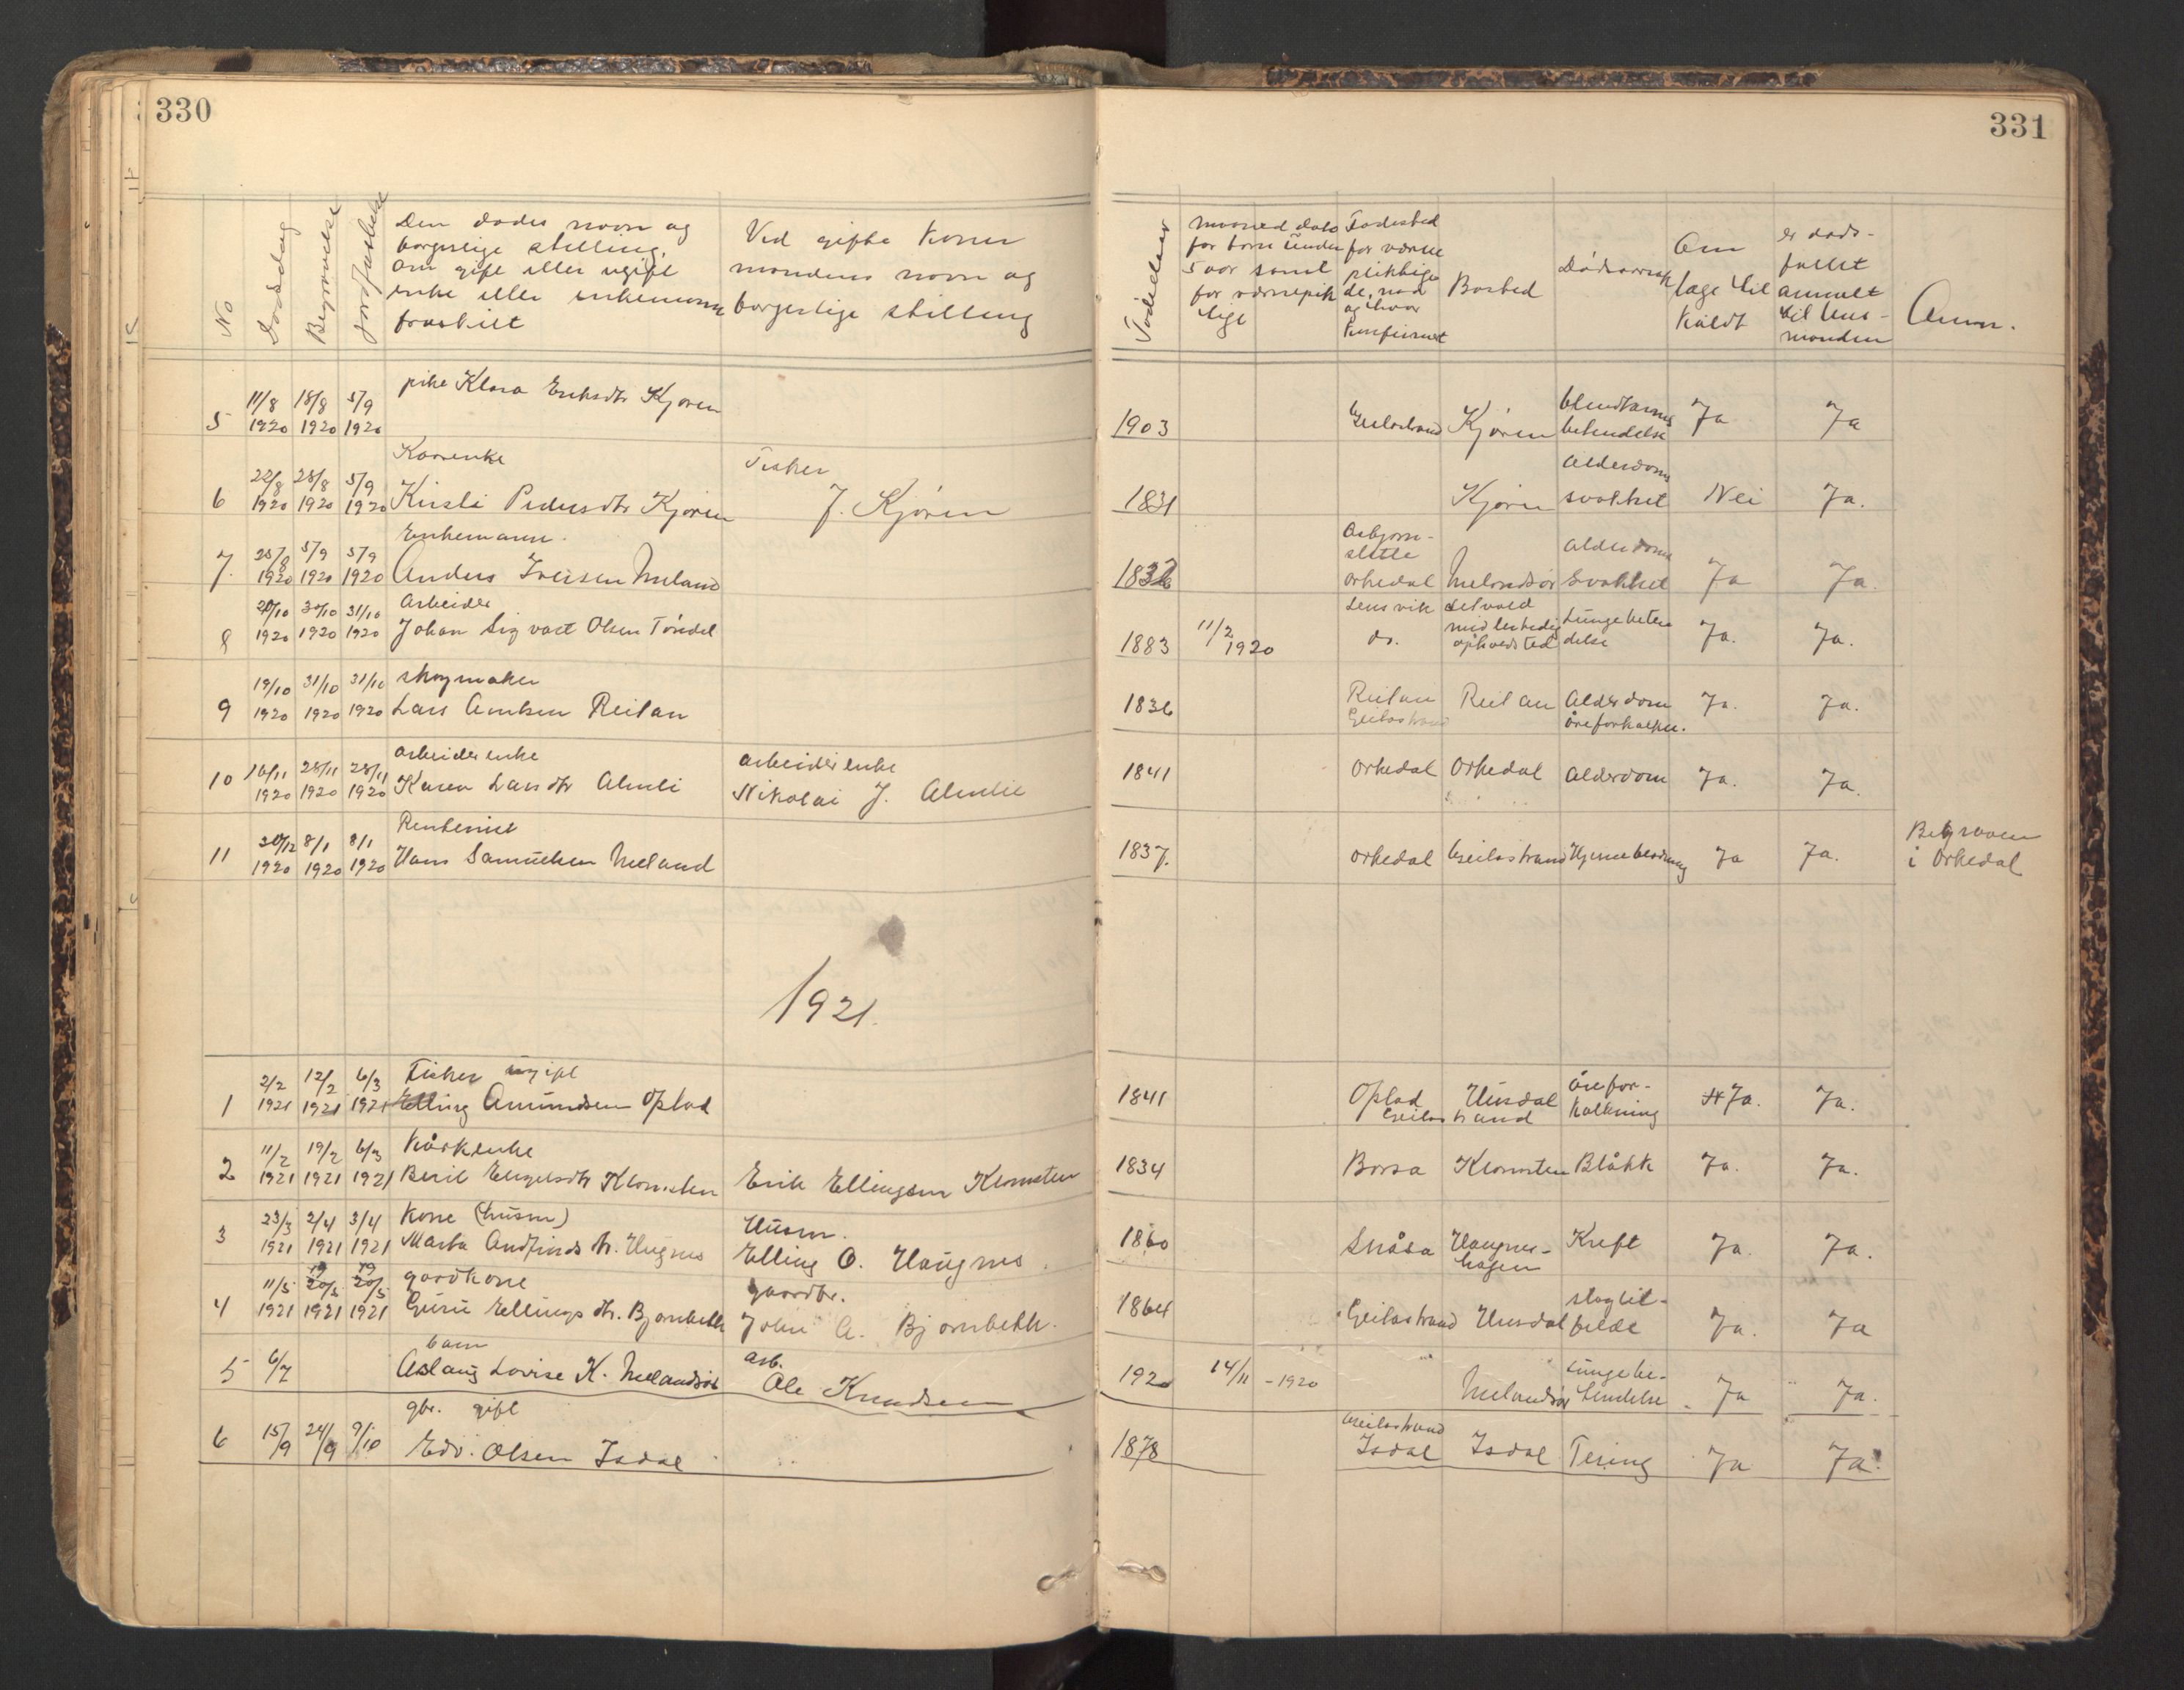 330
No
Dødsdag
Begravelse
Jordfæstelse
Den dødes navn og
borgerlige stilling,
om gift eller ugift
enke eller enkemann
fraskilt
Ved gifte koner
mandens navn og
borgerlige stilling
5
11/8 18/8 5/9
1920 1920 1920
pike Klara Eriksdtr Kjøren
Kaarenke
Fisker
6
22/8 28/8 5/9
1920 1920 1920
Kirsti Pedersdtr Kjøren
J. Kjøren
Enkemann.
7.
28/8 5/9 5/9
1920 1920 1920
Anders Iversen Meland
8
20/10 30/10 31/10
1920 1920 1920
Arbeider
Johan Sigvart Olsen Tøndel
9
19/10 31/10 31/10
1920 1920 1920
skomaker
Lars Arntsen Reitan
10
16/11 28/11 28/11
1920 1920 1920
arbeiderenke
Karen Larsdtr Almli
arbeiderenke
Nikolai J. Almlie
11
30/12 8/1 8/1
1920 1920 1920
Rentenist
Hans Samuelsen Meland
1921.
1
2/2 12/2 6/3
1921 1921 1921
Fisker ugift
Elling Amundsen Oplad
2
11/2 19/2 6/3
1921 1921 1921
Kårkenke
Berit Engelsdtr Klomsten
Erik Ellingsen Klomsten
3
23/3 2/4 3/4
1921 1921 1921
Kone (husm)
Marta Andfinds dtr. Haugnes
Husm.
Elling O. Haugnes
4
19 19
11/5 20/5 20/5
1921 1921 1921
gardkone
Guru Ellings dtr. Bjørnbekk
gaardbr.
John A. Bjørnbekk.
5
6/7
barn
Aslaug Lovise K. Melandsø
arb.
Ole Knudsen
6
15/9 24/9 9/10
gbr. gift
Edv. Olsen Isdal
331
Fødselsaar
maaned dato
for barn under
5 aar samt
for værnepik
tige
Fødested
for værne
pliktige
de, naa
og hvor
konfirmert
Bosted
Dødsaarsak
Om
læge til
kaldt
er døds-
fallet
anmelt
til lens-
manden
Anm.
1903
Geitastrand
Kjøren
blindtarms
betendelse
Ja
Ja
1831
Kjøren
Alderdoms
svakhet
Nei
Ja.
1832
Asbjørn-
slette
orkedal
Melandsø
Alderdoms
svakhet
Ja
Ja.
1883
11/2
1920
Lensvik
do.
midlertidig
opholdsted
Lungebeten
delse
Ja.
Ja.
1836
Reitan
Geitastrand
Reitan
Alderdom
åreforkalkn.
Ja.
Ja.
1841
Orkedal
Orkedal
Alderdom
Ja.
Ja.
1837.
orkedal
Geitastrand
Hjerneblødning
Ja
Ja.
Begraven
i Orkedal
1841
Oplad
Geitastrand
Husdal
Årefor-
kalkning
Ja.
Ja.
1834
Børsa
Klomsten
Blåkk
Ja.
Ja.
1860
Snåsa
Haugnes-
hagen
Kreft
Ja.
Ja.
1864
Geitastrand
Husdal
slagtil-
felde
Ja.
Ja
1920
14/11 - 1920
Melandsø
Lungebe-
tendelse
Ja
Ja.
1878
Geitastrand
Isdal
Isdal
Tæring
Ja
Ja.